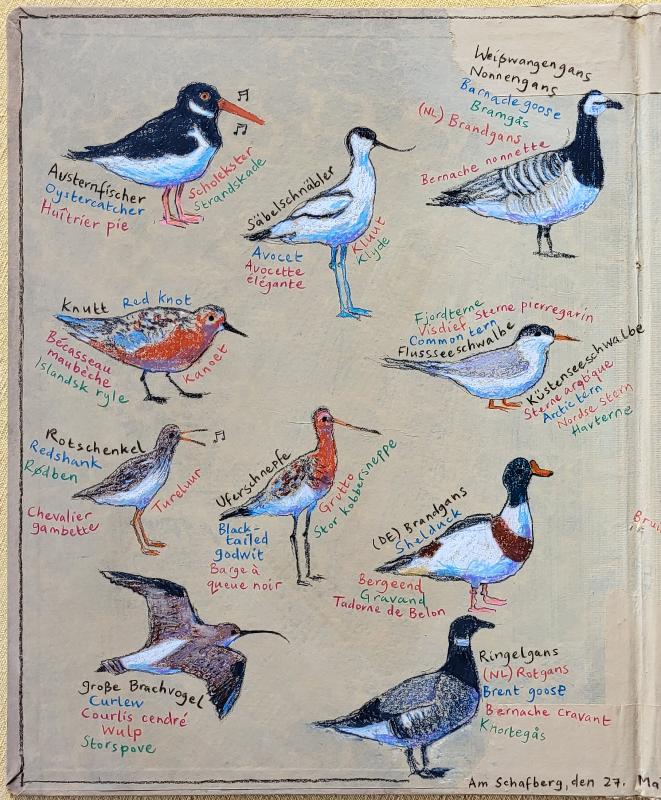 Austernfischer
Oystercatcher
Huîtrier pie
Scholekster
Strandskade
Säbelschnäbler
Avocet
Avocette
élégante
Kluut
Klyde
Weißwangengans
Nonnengans
Barnacle goose
Bramgås
(NL) Brandgans
Bernache nonnette
Knutt Red knot
Bécasseau
maubèche
Islandsk ryle
Kanoet
Fjordterne
Visdief Sterne pierregarin
Common tern
Flussseeschwalbe
Küstenseeschwalbe
Sterne arctique
Arctic tern
Nordse Stern
Havterne
Rotschenkel
Redshank
Rødben
Tureluur
Chevalier
gambette
Uferschnepfe
Black-
tailed
godwit
Barge à
queue noir
Grutto
Stor kobbersneppe
(DE) Brandgans
Shelduck
Bergeend
Gravand
Tadorne de Belon
große Brachvogel
Curlew
Courlis cendré
Wulp
Storspove
Ringelgans
(NL) Rotgans
Brent goose
Bernache cravant
Knortegås
Am Schafberg, den 27. Ma